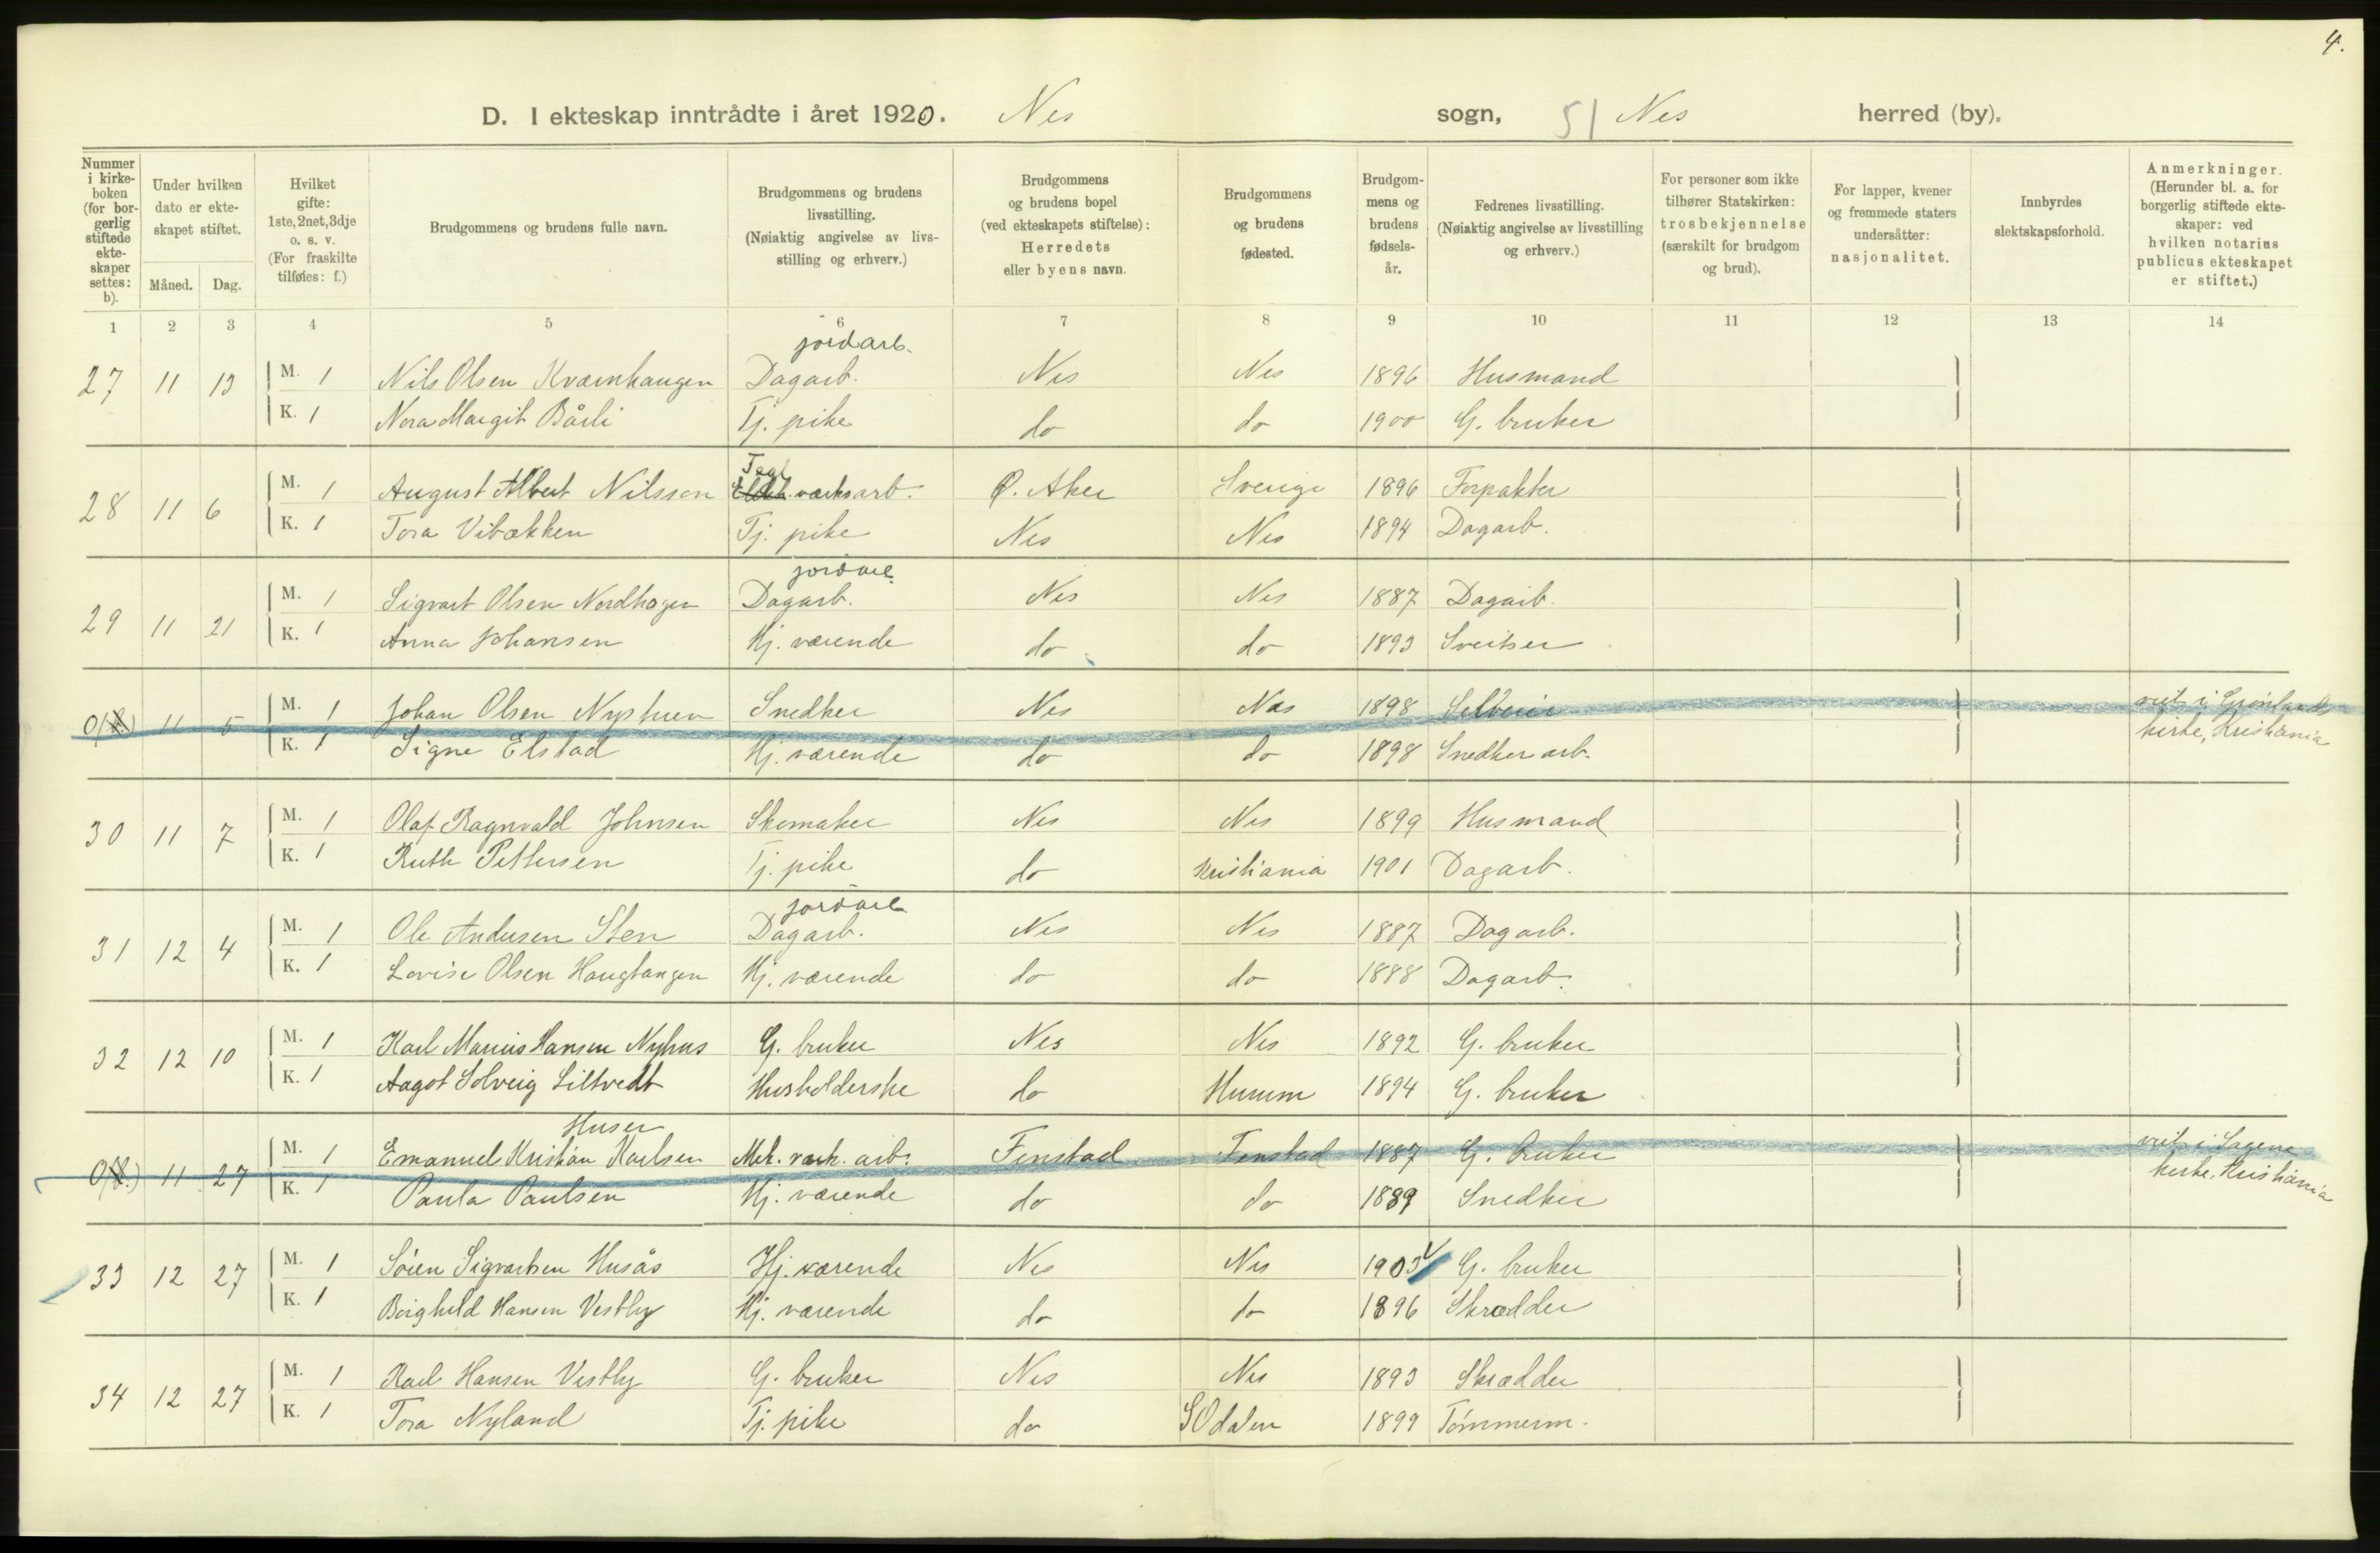 4.
D. I ekteskap inntrådte i året 1920. Nes sogn, 51 Nes herred (by).
Nummer i kirke-boken (for bor-gerlig stiftede ekte-skaper settes: b).
Under hvilken dato er ekte-skapet stiftet.
Måned. Dag.
Hvilket gifte: 1ste, 2net, 3dje o. s. v. (For fraskilte tilføies: f.)
Brudgommens og brudens fulle navn.
Brudgommens og brudens livsstilling. (Nøiaktig angivelse av livs-stilling og erhverv.)
Brudgommens og brudens bopel (ved ekteskapets stiftelse): Herredets eller byens navn.
Brudgommens og brudens fødested.
Brudgom-mens og brudens fødsels-år.
Fedrenes livsstilling. (Nøiaktig angivelse av livsstilling og erhverv.)
For personer som ikke tilhører Statskirken: trosbekjennelse (særskilt for brudgom og brud).
For lapper, kvener og fremmede staters undersåtter: nasjonalitet.
Innbyrdes slektskapsforhold.
Anmerkninger. (Herunder bl. a. for borgerlig stiftede ekte-skaper: ved hvilken notarius publicus ekteskapet er stiftet.)
1 2 3 4 5 6 7 8 9 10 11 12 13 14
jordarb.
27 11 13 M. 1 Nils Olsen Kværnhaugen Dagarb. Nes Nes 1896 Husmand
K. 1 Nora Margit Bårli Tj. pike do do 1900 G. bruker
Tegl
28 11 6 M. 1 August Albert Nilsson Elekt. værksarb. Ø. Aker Sverige 1896 Forpakter
K. 1 Tora Vibækken Tj. pike Nes Nes 1894 Dagarb.
jordarb.
29 11 21 M. 1 Sigvart Olsen Nordhagen Dagarb. Nes Nes 1887 Dagarb.
K. 1 Anna Johansen Hj. værende do do 1893 Sveitser
0 11 5 M. 1 Johan Olsen Nyhuen Snedker Nes Nes 1898 Selveier viet i Grønlands
K. 1 Signe Elstad Hj. værende do do 1898 Snedker arb. kirke, Kristiania
30 11 7 M. 1 Olaf Ragnvald Johnsen Skomaker Nes Nes 1899 Husmand
K. 1 Ruth Pettersen Tj. pike do Kristiania 1901 Dagarb.
jordarb.
31 12 4 M. 1 Ole Andersen Sten Dagarb. Nes Nes 1887 Dagarb.
K. 1 Lovise Olsen Haugtangen Hj. værende do do 1888 Dagarb.
32 12 10 M. 1 Karl Marius Hansen Nyhus G. bruker Nes Nes 1892 G. bruker
K. 1 Aagot Solveig Siltvedt Husholderske do Hurum 1894 G. bruker
Huser
0 11 27 M. 1 Emanuel Kristian Karlsen Mek. værk. arb. Fenstad Fenstad 1887 G. bruker viet i Sagene
K. 1 Paula Paulsen Hj. værende do do 1889 Snedker kirke, Kristiania
33 12 27 M. 1 Søren Sigvartsen Husås Hj. værende Nes Nes 1903 G. bruker
K. 1 Borghild Hansen Vestby Hj. værende do do 1896 Skrædder
34 12 27 M. 1 Karl Hansen Vestby G. bruker Nes Nes 1893 Skrædder
K. 1 Tora Nyland Tj. pike do S Odalen 1899 Tømmerm.